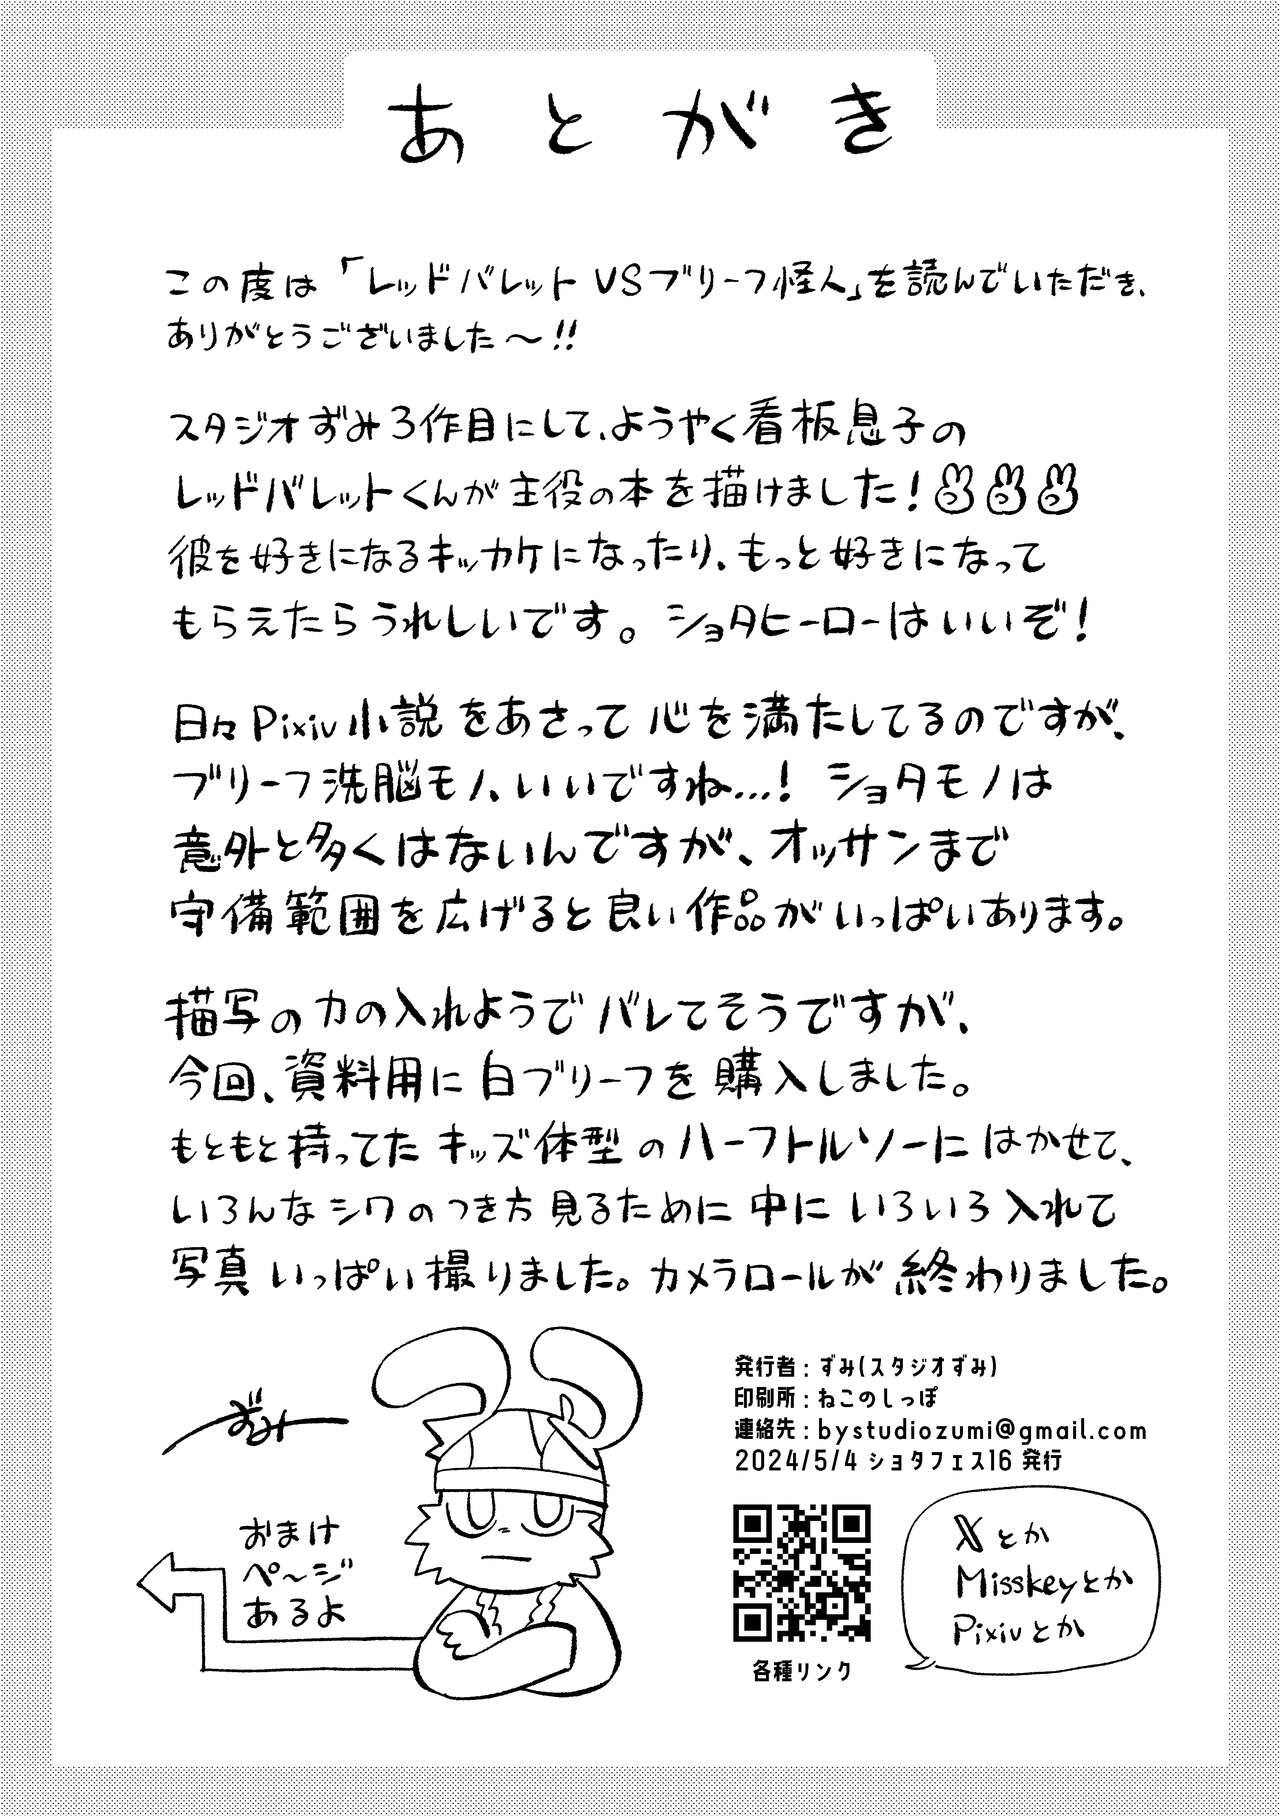 あとがき
この度は「レッドバレットVSブリーフ怪人」を読んでいただき、
ありがとうございました〜!!
スタジオずみ3作目にして、ようやく看板息子の
レッドバレットくんが主役の本を描けました!
彼を好きになるキッカケになったり、もっと好きになって
もらえたらうれしいです。ショタヒーローはいいぞ!
日々Pixiv小説をあさって心を満たしてるのですが、
ブリーフ洗脳モノ、いいですね...! ショタモノは
意外と多くはないんですが、オッサンまで
守備範囲を広げると良い作品がいっぱいあります。
描写の力の入れようでバレてそうですが、
今回、資料用に白ブリーフを購入しました。
もともと持ってたキッズ体型のハーフトルソーにはかせて、
いろんなシワのつき方見るために中にいろいろ入れて
写真いっぱい撮りました。カメラロールが終わりました。
ずみ
おまけ
ペ〜ジ
あるよ
発行者:ずみ(スタジオずみ)
印刷所:ねこのしっぽ
連絡先:bystudiozumi@gmail.com
2024/5/4 ショタフェス16 発行
各種リンク
Xとか
Misskeyとか
Pixivとか